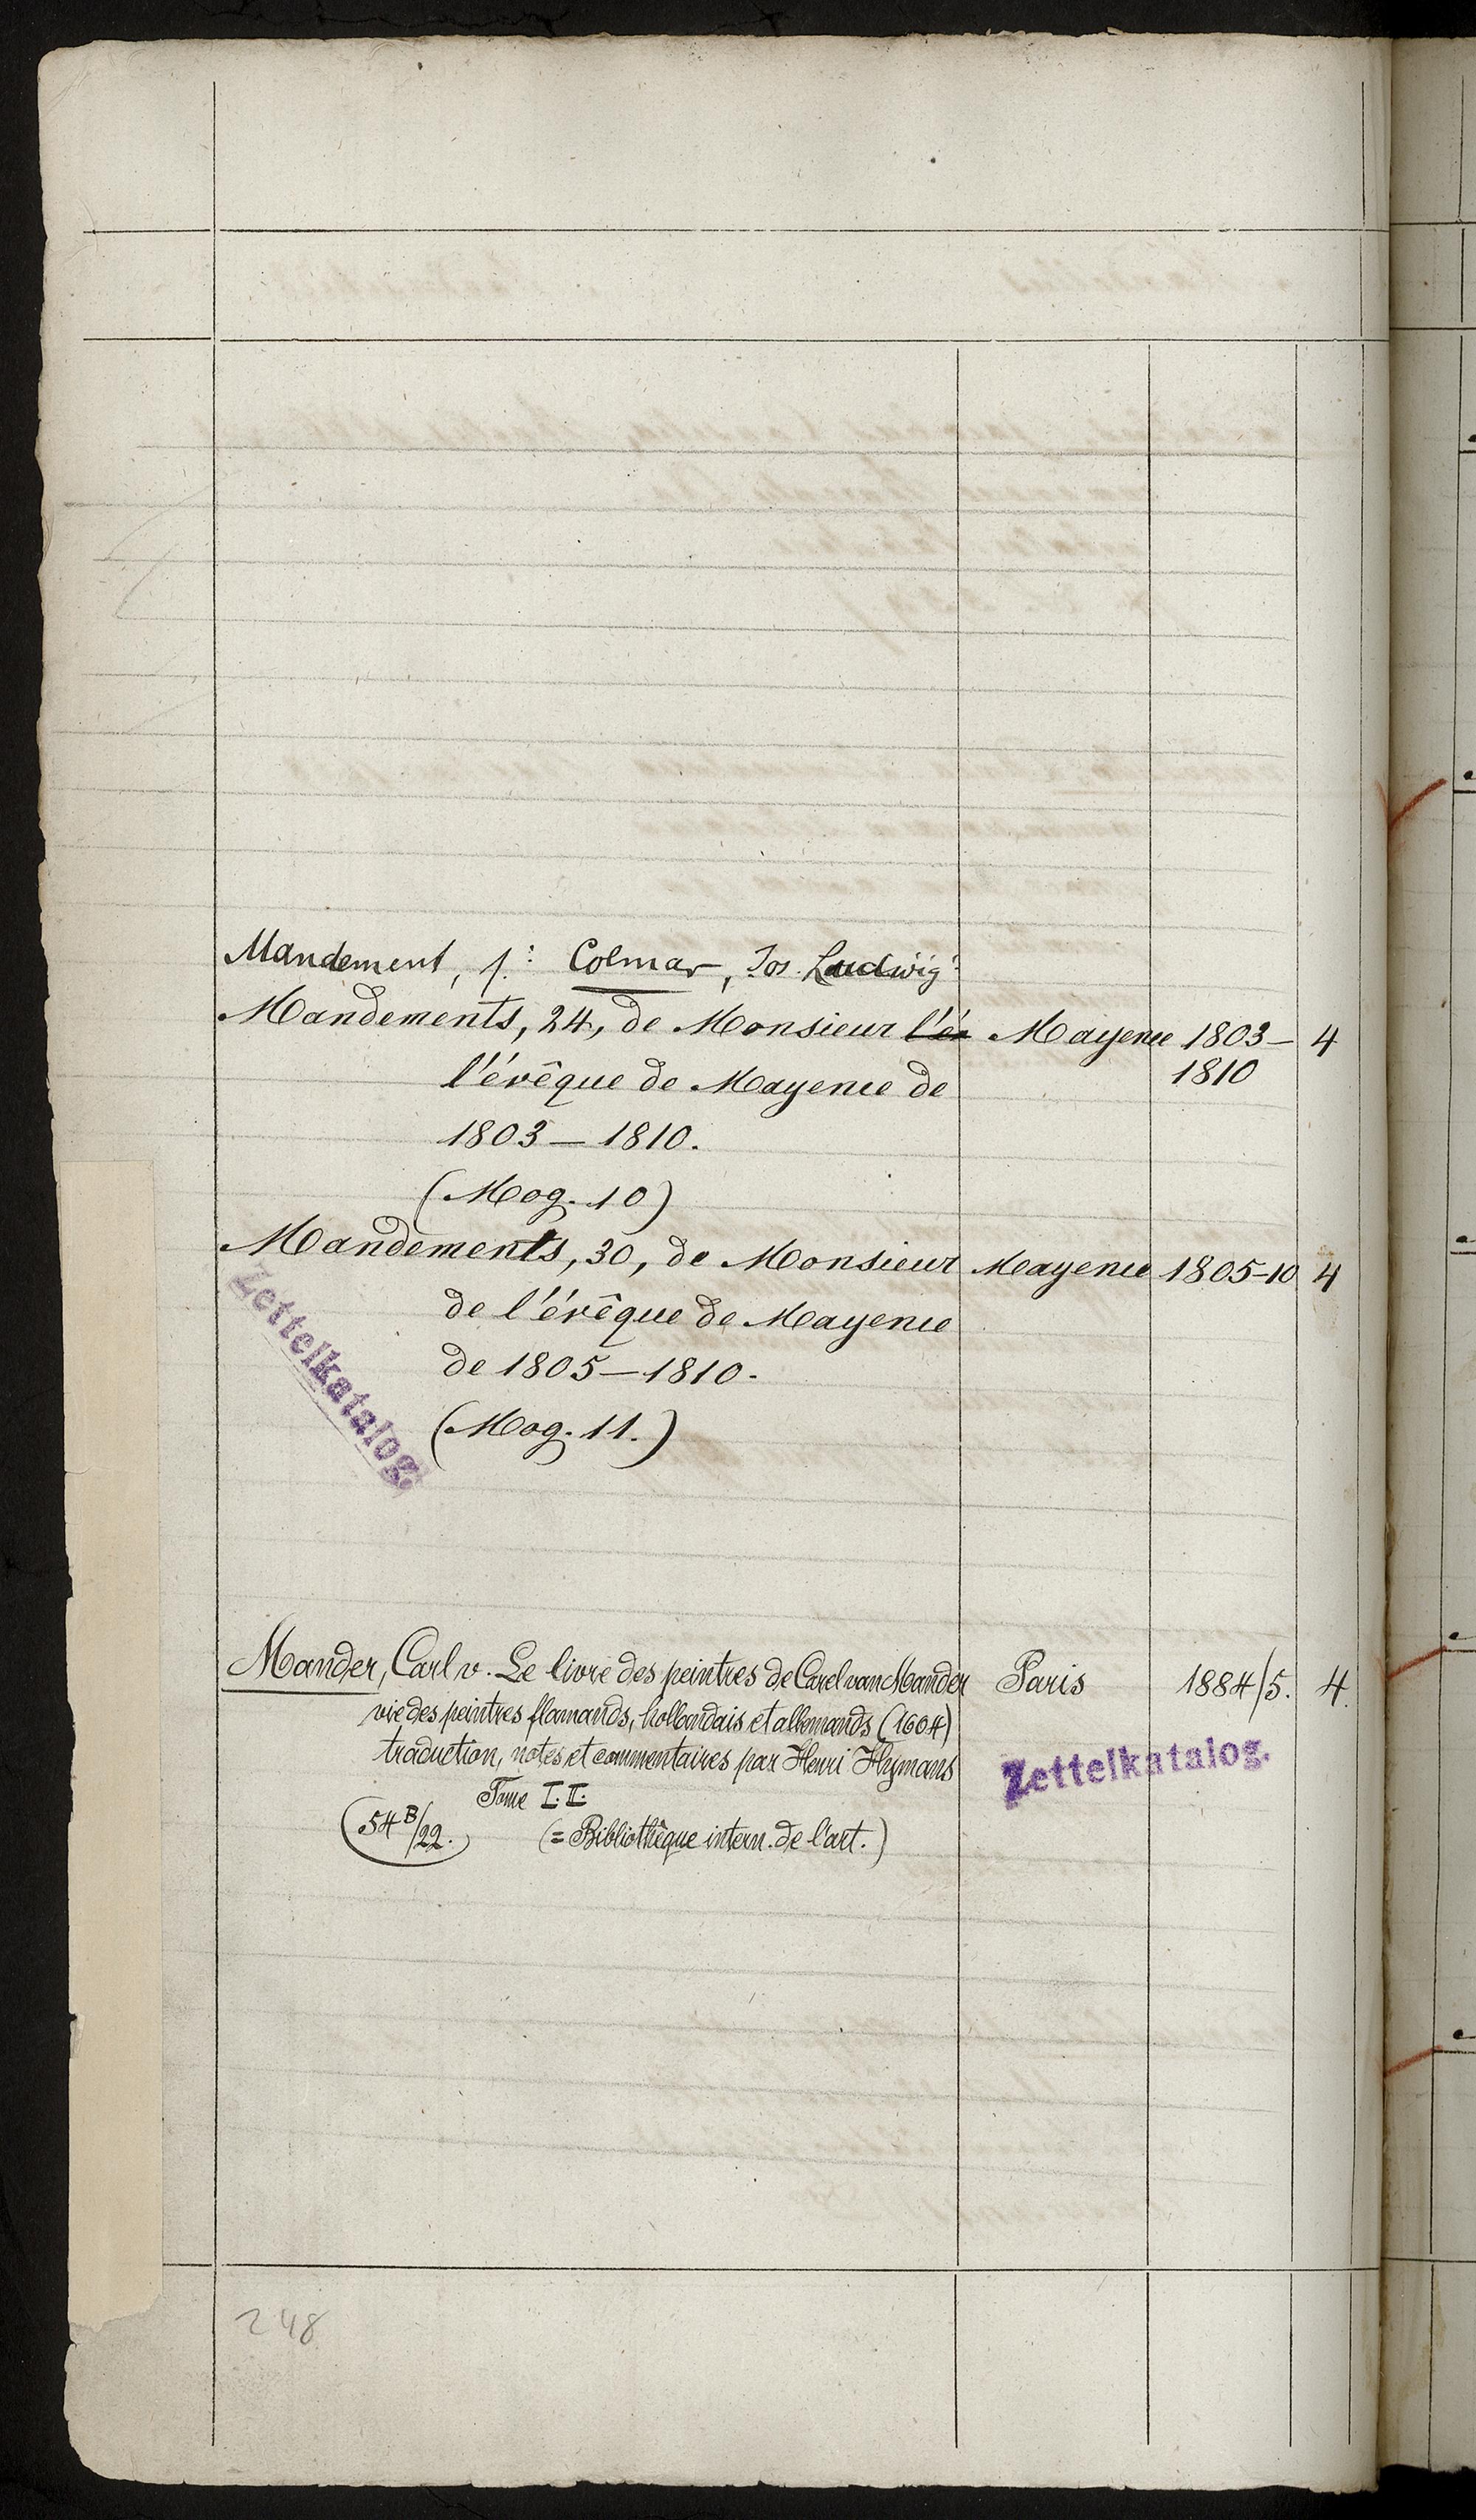 Mandement, s.: Colmar, Jos. Ludwig
Mandements, 24, de Monsieur l'é Mayence 1803– 4
l'évêque de Mayence de 1810
1803–1810.
(Mog. 10)
Mandements, 30, de Monsieur Mayence 1805–10 4
de l'évêque de Mayence
de 1805–1810.
(Mog. 11.)
Zettelkatalog.
Mander, Carl v. Le livre des peintres de Carel van Mander Paris 1884/5. 4.
vie des peintres flamands, hollandais et allemands (1604)
traduction, notes et commentaires par Henri Hymans
Zettelkatalog.
Tome I. II.
(54B/22.) (= Bibliothèque intern. de l'art.)
248